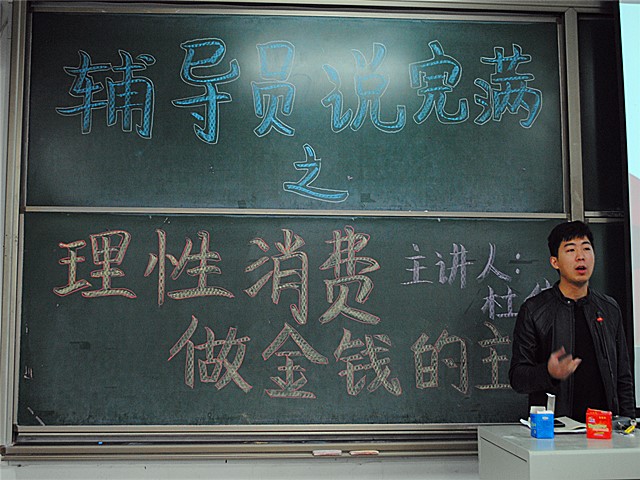 辅导员说完满
之
理性消费
主讲人：
杜
做金钱的主